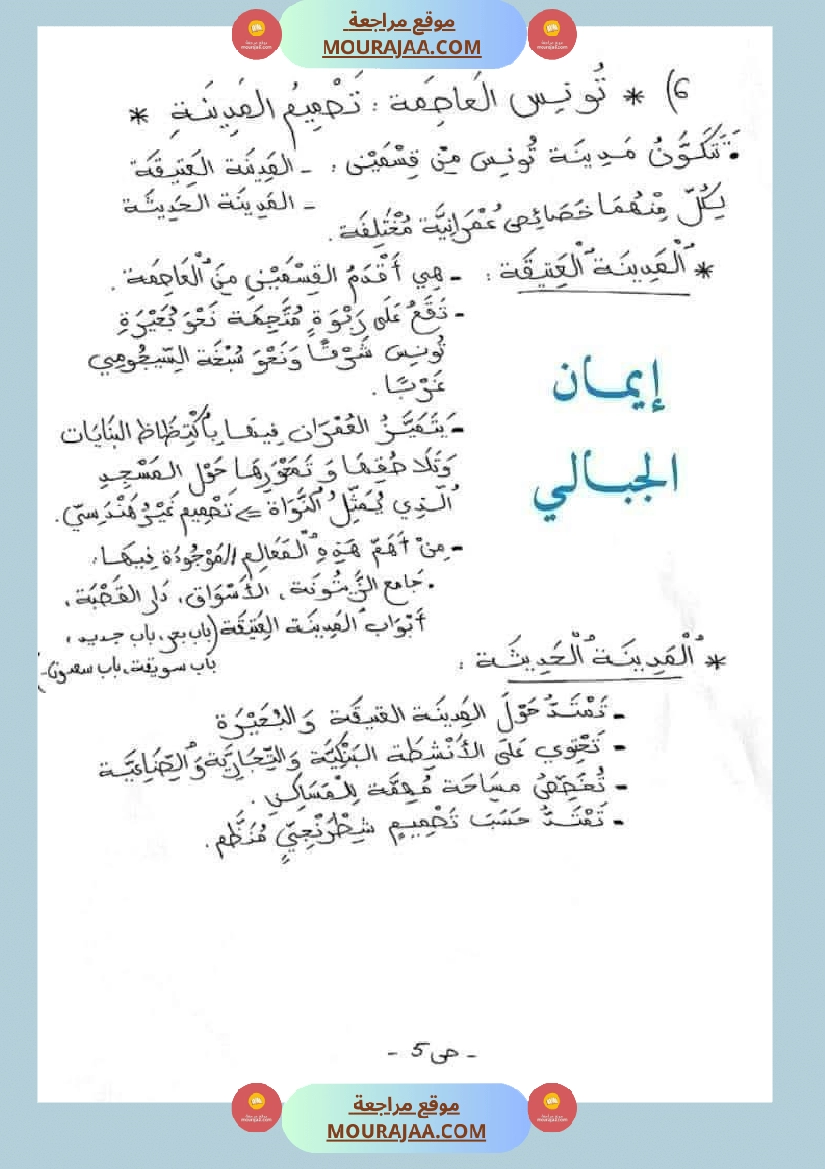 موقع مراجعة
MOURAJAA.COM
6) * تُونِس العَاصِمَة : تَصْمِيمُ المَدِينَةِ *
• تَتَكَوَّنُ مَدِينَة تُونِس مِنْ قِسْمَيْنِ : - المَدِينَة العَتِيقَة
- المَدِينَة الحَدِيثَة
لِكُلّ مِنْهُمَا خَصَائِص عُمْرَانِيَّة مُخْتَلِفَة .
* اُلْمَدِينَة اُلْعَتِيقَة :
- هِي أَقْدَمُ القِسْمَيْنِ مِنَ اُلْعَاصِمَة .
- تَقَعُ عَلَى رَبْوَةٍ مُتَّجِهَة نَحْوَ بُحَيْرَةِ
تُونِس شَرْقًا وَنَحْوَ سَبْخَة السِّيجُومِي
غَرْبًا .
- يَتَمَيَّزُ العُمْرَان فِيهَا بِاُكْتِظَاظ البَنَايَات
وَتَلَاصُقِهَا وَ تَمَحْوُرِهَا حَوْل المَسْجِدِ
اُلَّذِي يُمَثِّلُ اُلنَّوَاة => تَصْمِيم غَيْر هَنْدَسِيّ.
- مِنْ أَهَمّ هَذِهِ اُلْمَعَالِم المَوْجُودَة فِيهَا:
. جَامع الزَّيْتُونَة ، الأَسْوَاق، دَار القَصْبَة،
أَبْوَاب اُلمَدِينَة العَتِيقَة (باب بحر، باب جديد ،
باب سويقة، باب سعدون..)
إيمان
الجبالي
* اُلْمَدِينَة اُلْحَدِيثَة :
- تَمْتَدُّ حَوْلَ المَدِينَة العَتِيقَة وَ البُحَيْرَة
- تَحْتَوِي عَلَى الأَنْشِطَة البَنْكِيَّة وَالتِّجَارِيَّة وَ اُلصِّنَاعِيَّة
- تُخَصِّصُ مِسَاحَة مُهِمَّة لِلْمَسَاكِنِ .
- تَمْتَدُّ حَسَبَ تَصْمِيمٍ شِطْرَنْجِيٍّ مُنَظَّم .
- ص 5 -
موقع مراجعة
MOURAJAA.COM